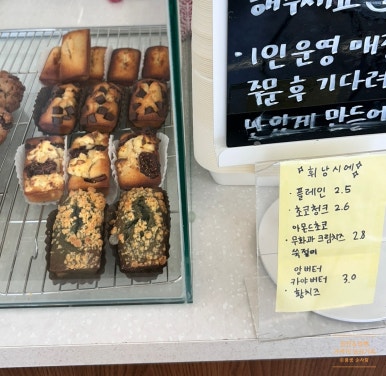 해주세요
· 1인 운영 매장
주문 후 기다려
맛있게 만들어
휘낭시에
· 플레인 2.5
· 초코청크 2.6
아몬드초코
· 무화과 크림치즈 2.8
쑥절미
앙버터
카야버터 3.0
· 황치즈